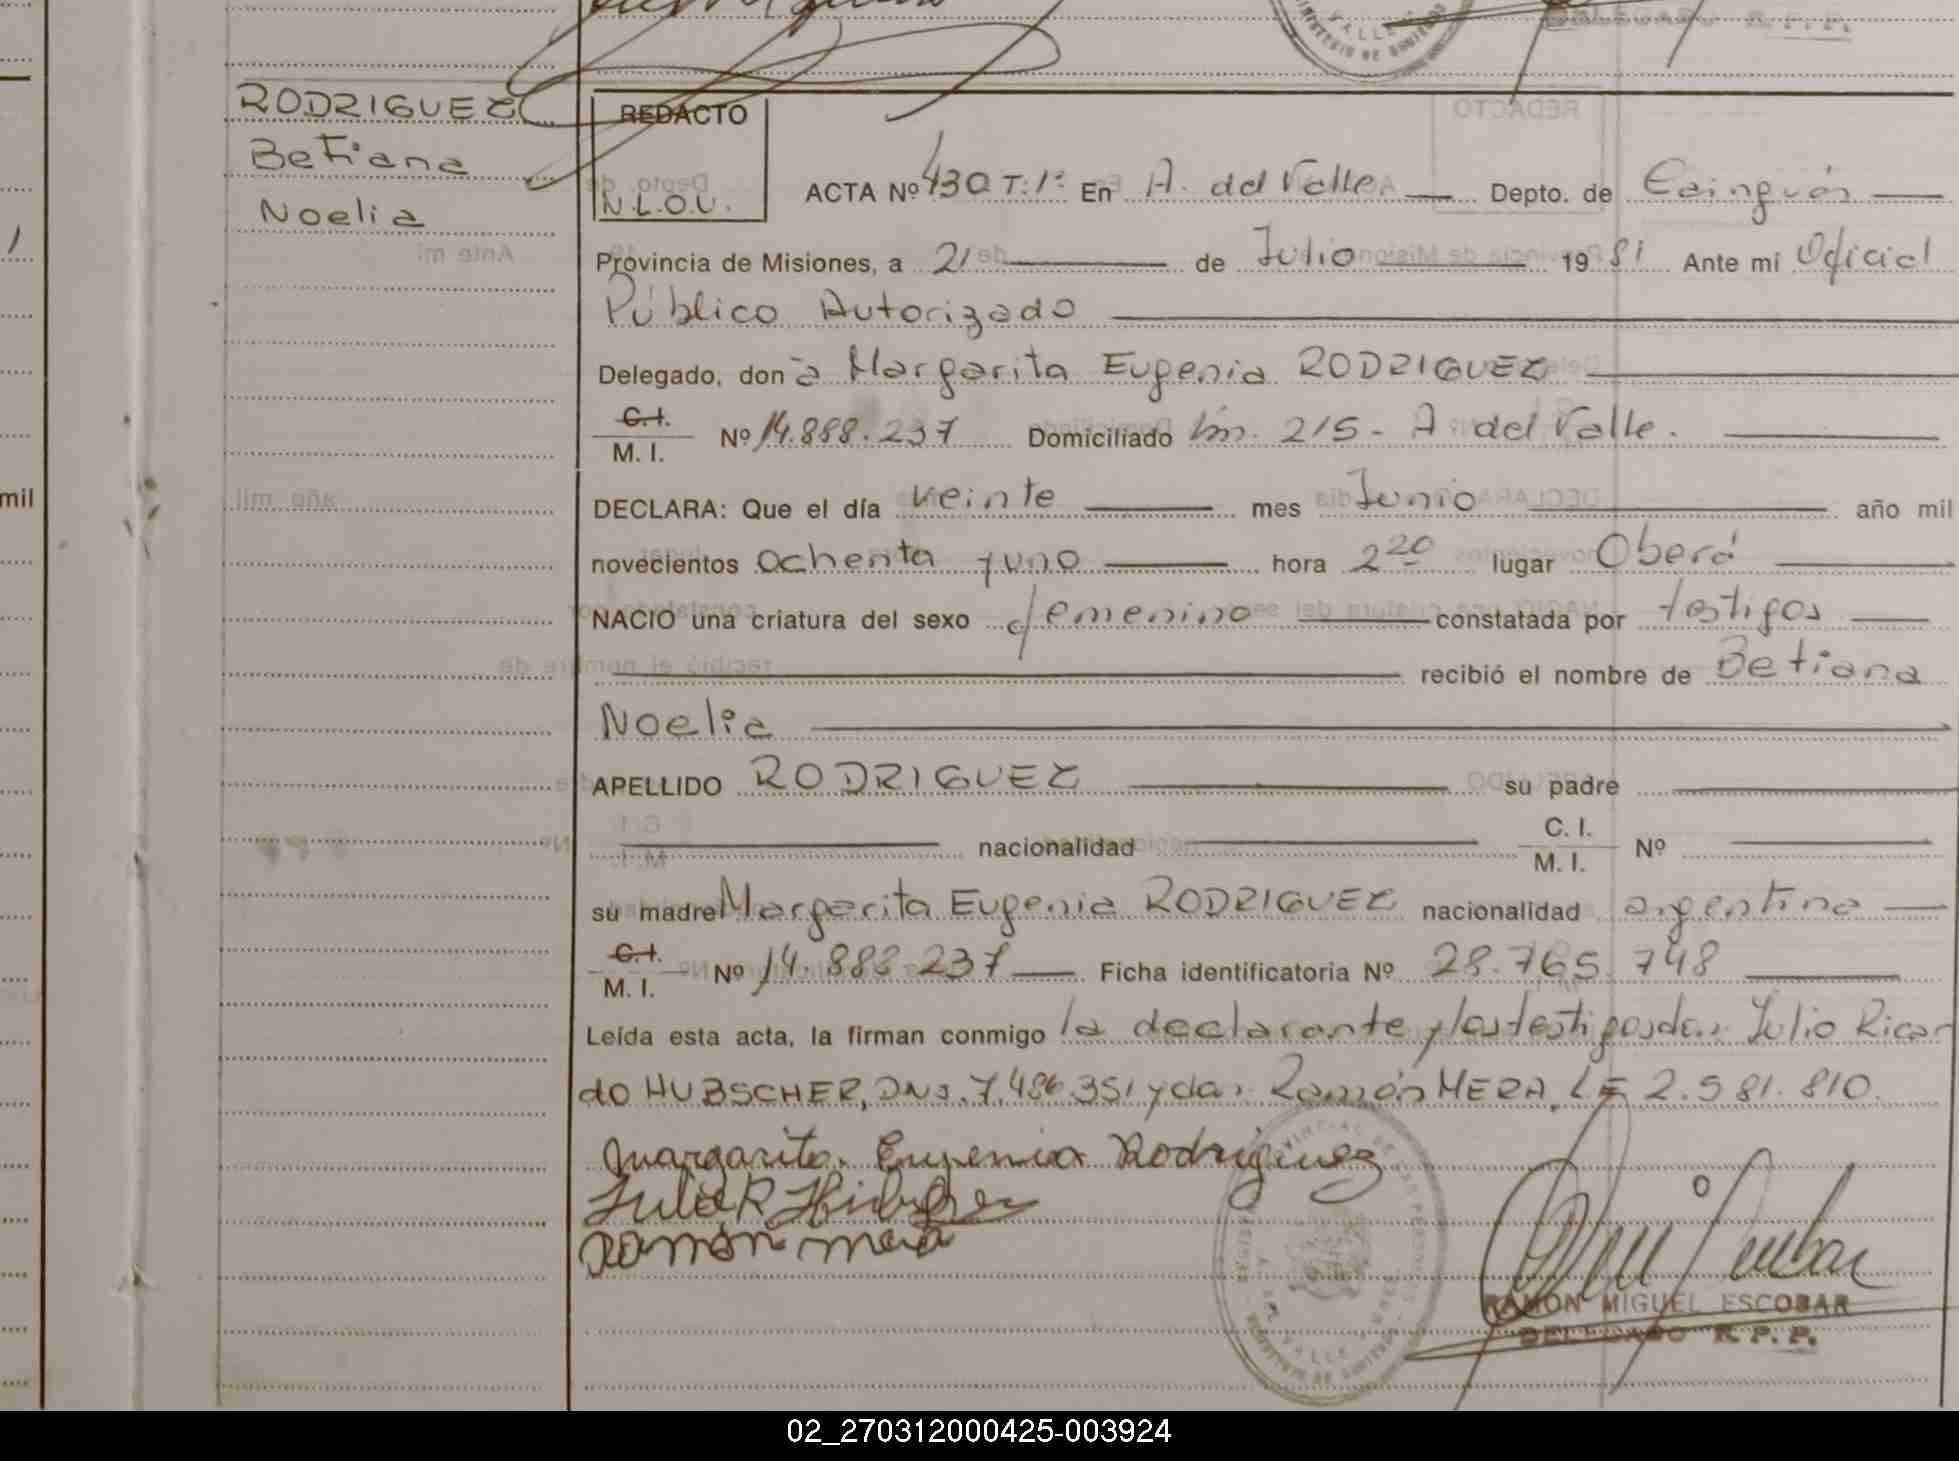 RODRIGUEZ
Betiana
Noelia
REDACTO
N.L.O.U.
ACTA Nº 430 T:1º En A. del Valle. Depto. de Cainguás
Provincia de Misiones, a 21 de Julio 1981 Ante mí Oficial
Público Autorizado
Delegado, don a Margarita Eugenia RODRIGUEZ
C.I.
M. I. Nº 14.888.237 Domiciliado Lín. 215 - A del Valle.
DECLARA: Que el día veinte mes Junio año mil
novecientos ochenta y uno hora 2 20 lugar Oberá
NACIO una criatura del sexo femenino constatada por testigos
recibió el nombre de Betiana
Noelia
APELLIDO RODRIGUEZ su padre
nacionalidad C. I. M. I. Nº
su madre Margarita Eugenia RODRIGUEZ nacionalidad argentina
C.I.
M. I. Nº 14.888.237 Ficha identificatoria Nº 28.765.748
Leída esta acta, la firman conmigo la declarante y los testigos don Julio Ricar
do HUBSCHER, DNI. 7.486.351 y don Ramón MERA, LE 2.581.810.
Margarita Eugenia Rodriguez
Julio R Hubscher
Ramón mera
RAMON MIGUEL ESCOBAR
DELEGADO R. P. P.
mil
02_270312000425-003924